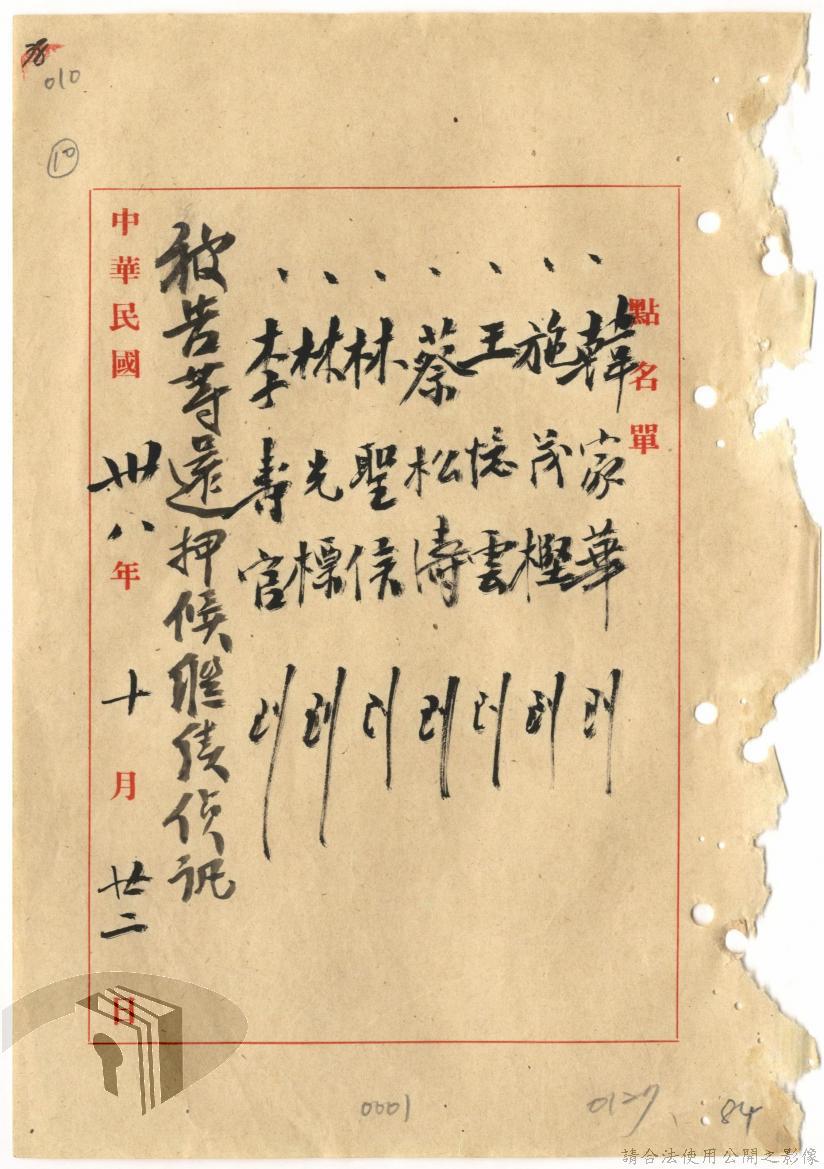 010
10
點名單
韓家華 到
施茂樫 到
王憶雲 到
蔡松濤 到
林聖侯 到
林光標 到
李壽官 到
被告等還押候繼續偵訊
中華民國卅八年十月廿二日
0001
0127
84
請合法使用公開之影像